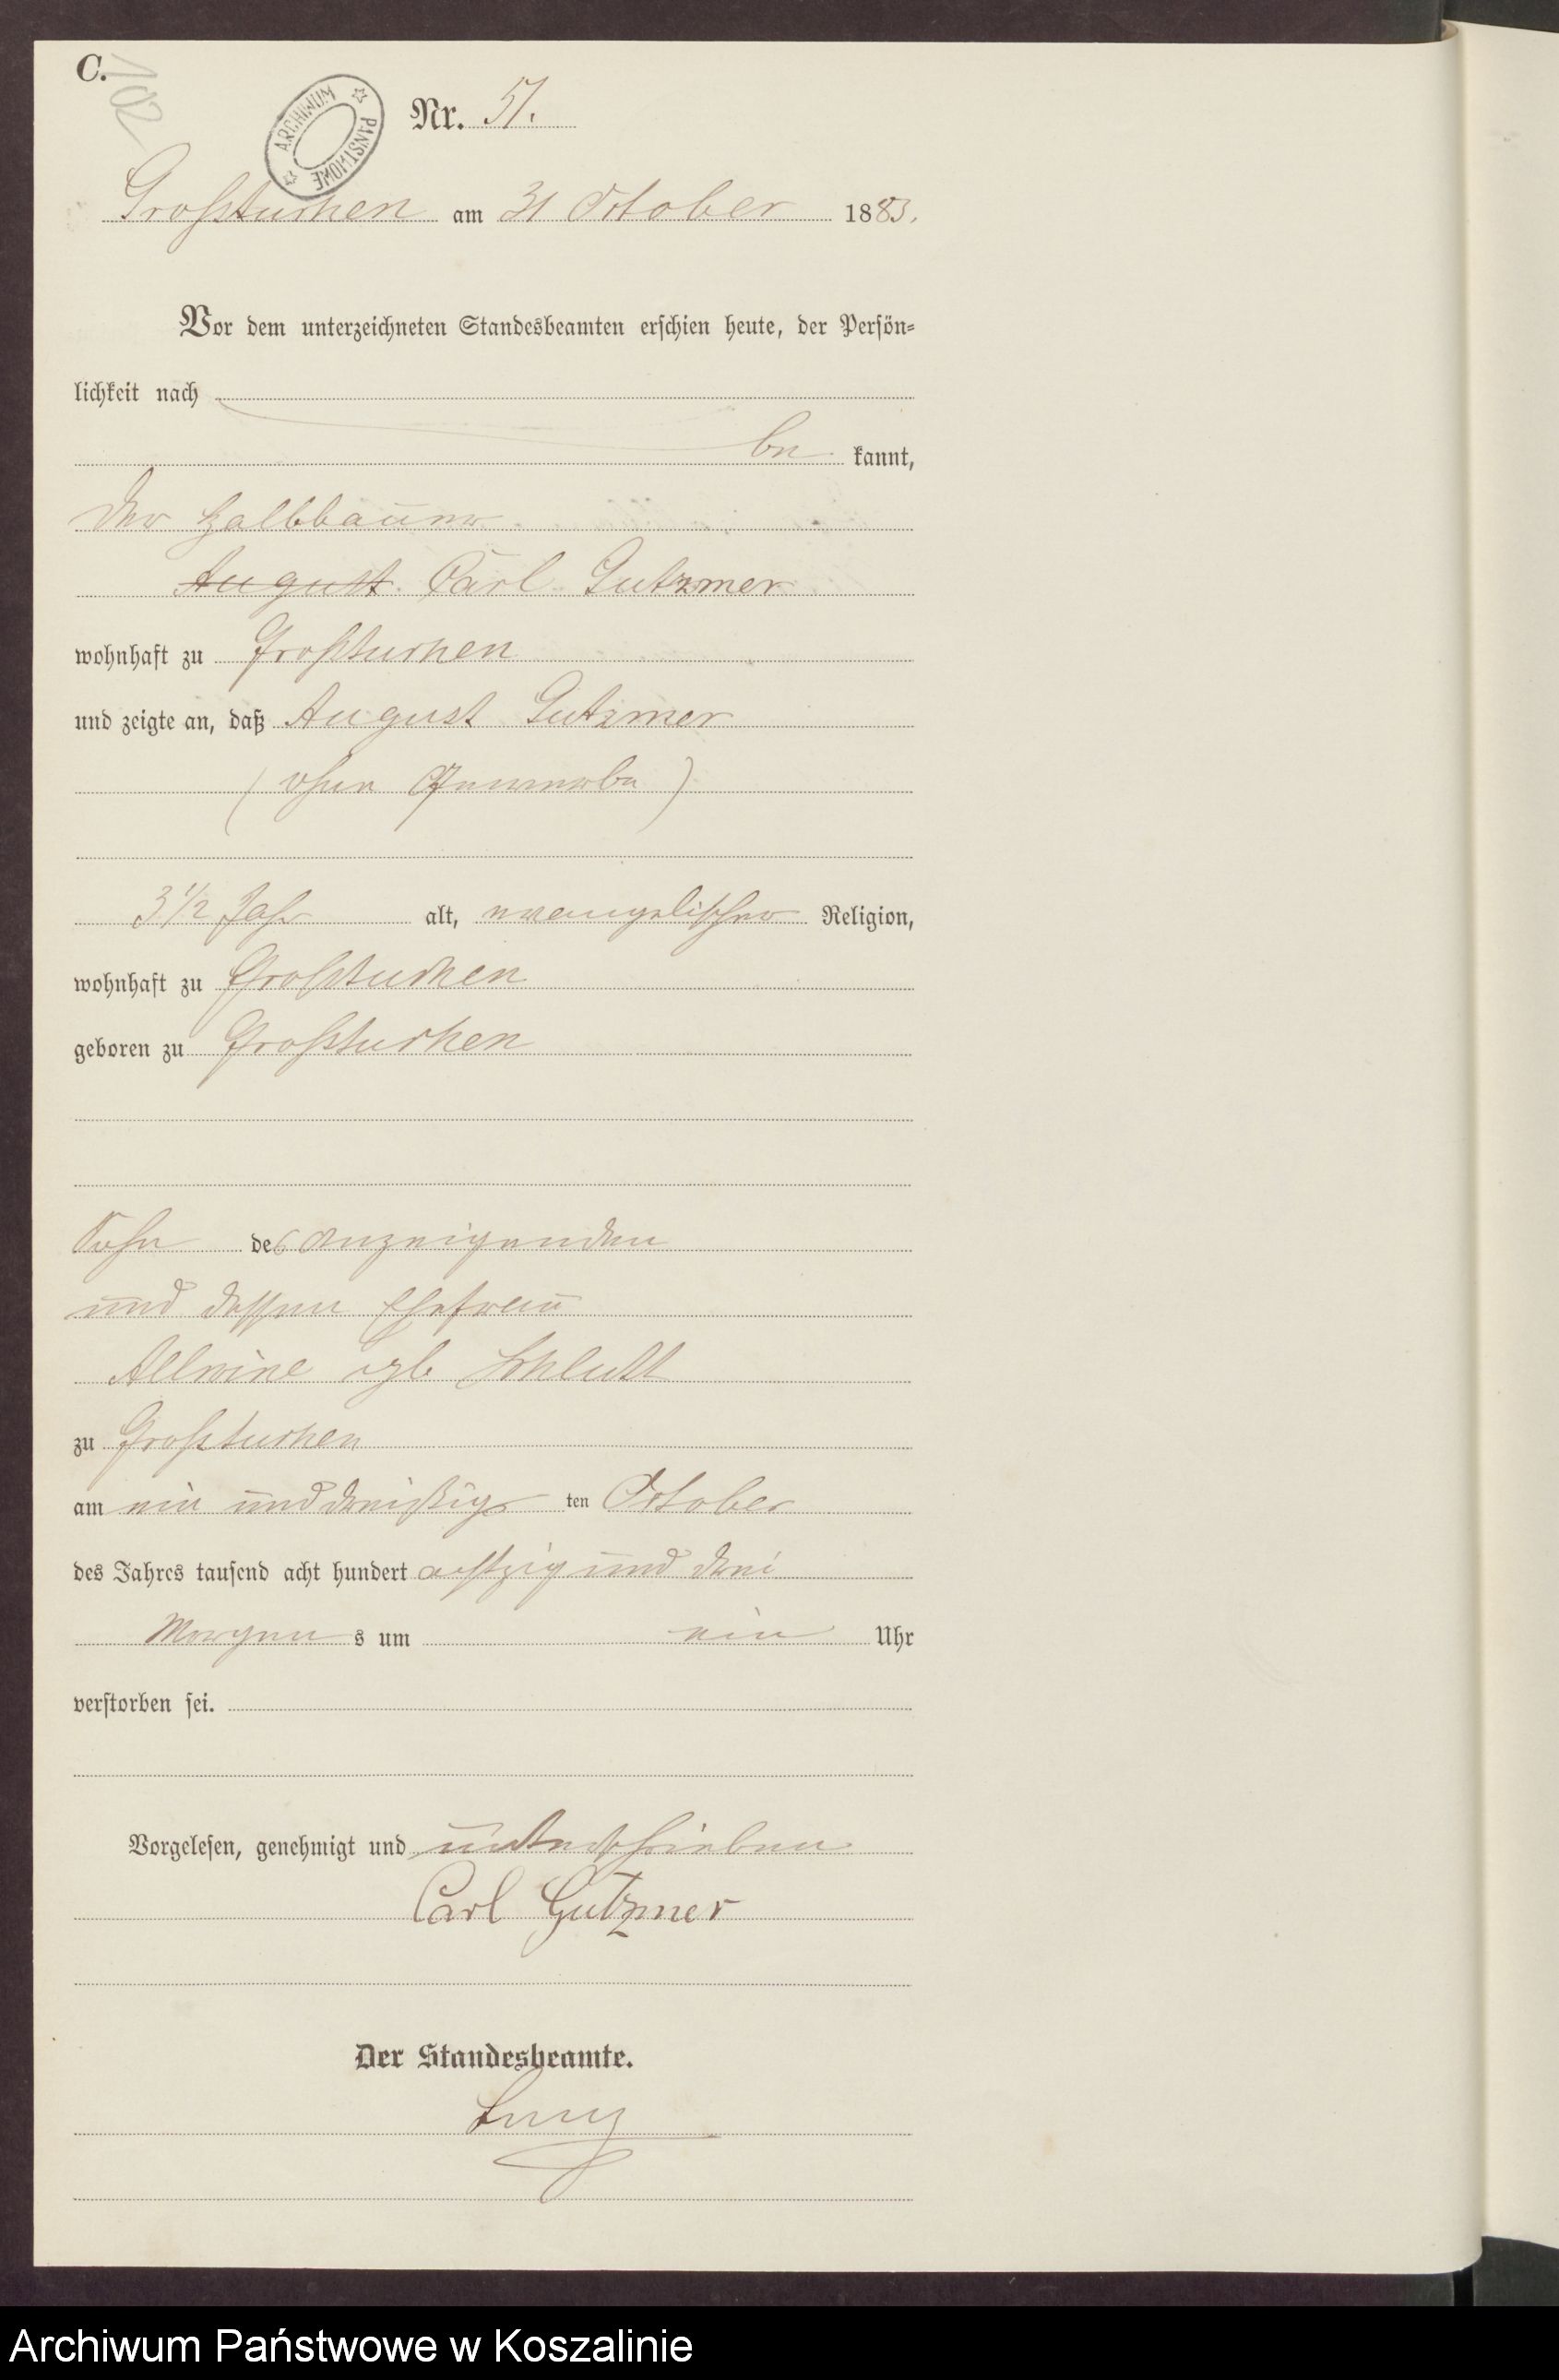 C.
102
ARCHIWUM PAŃSTWOWE
Nr. 51.
Großtuchen am 31 October 1883.
Vor dem unterzeichneten Standesbeamten erschien heute, der Persön-
lichkeit nach
be kannt,
der Halbbauer
August Carl Gutzmer
wohnhaft zu Großtuchen
und zeigte an, daß August Gutzmer
(ohne Gewerbe)
3 1/2 Jahr alt, evangelischer Religion,
wohnhaft zu Großtuchen
geboren zu Großtuchen
Sohn des Anzeigenden
und dessen Ehefrau
Allwine geb
zu Großtuchen
am ein und dreißigs ten October
des Jahres tausend acht hundert achtzig und drei
Morgen s um ein Uhr
verstorben sei.
Vorgelesen, genehmigt und unterschrieben
Carl Gutzmer
Der Standesbeamte.
Archiwum Państwowe w Koszalinie